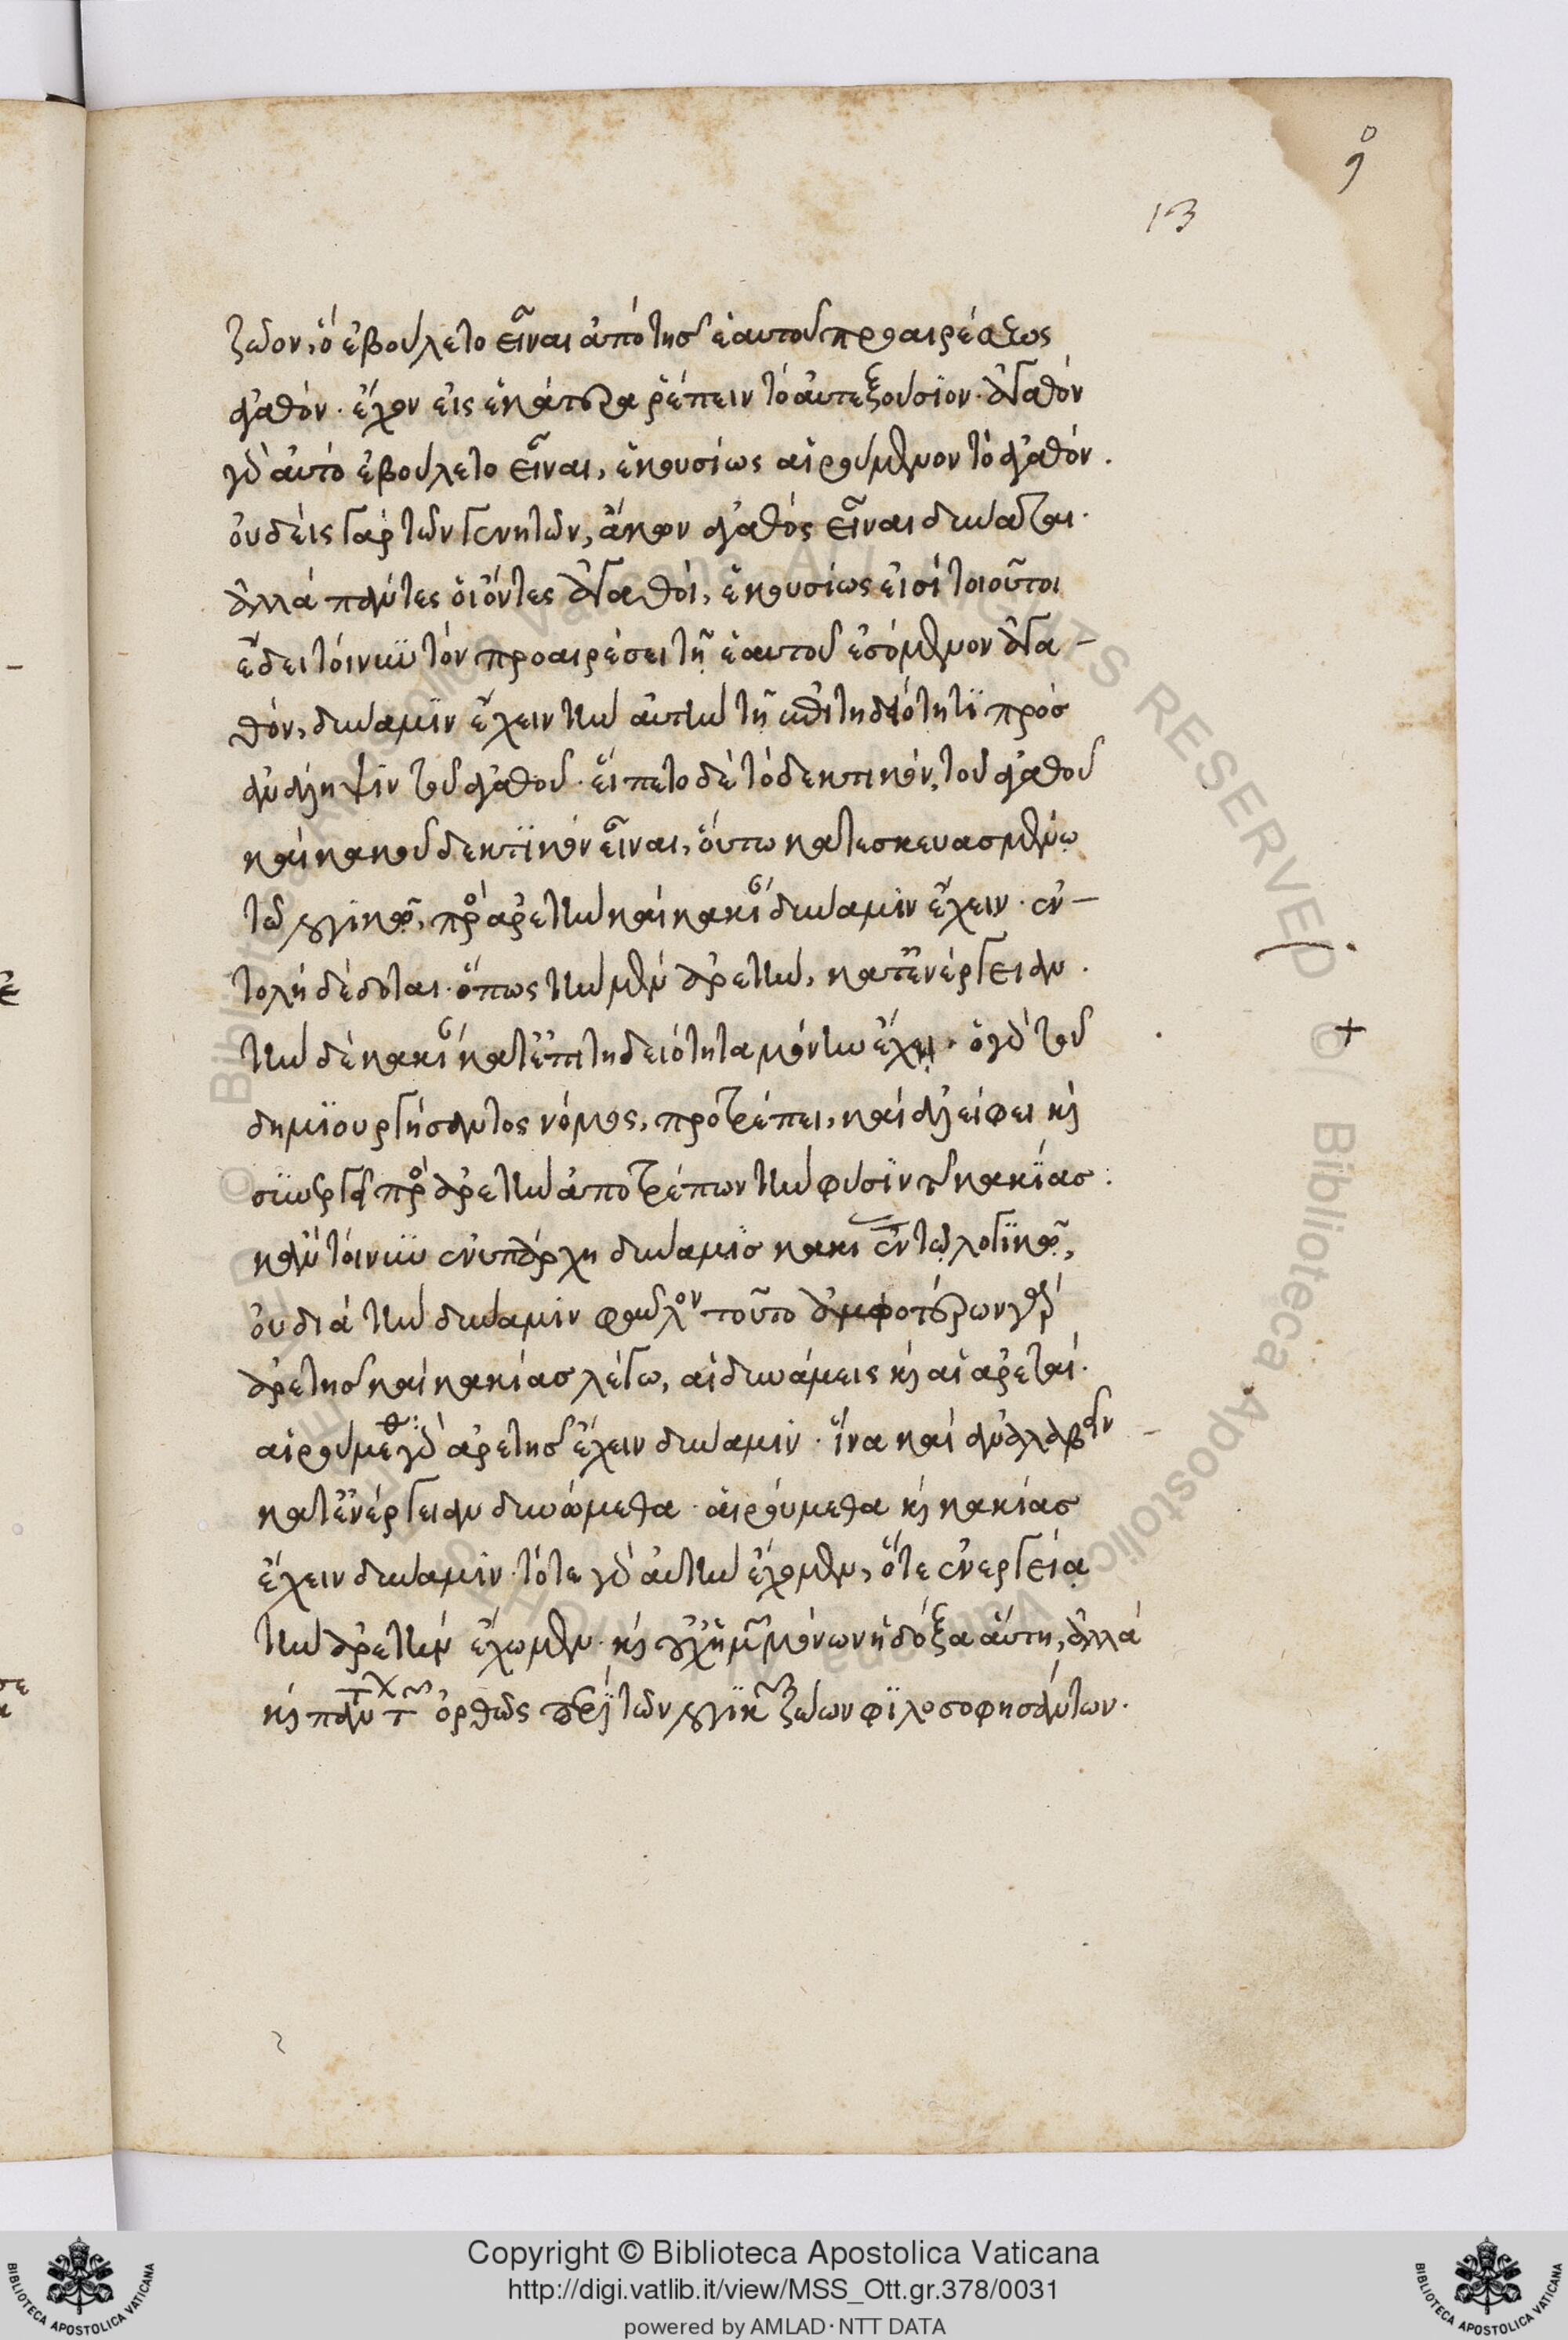 13
ζῶον, ὃ ἐβούλετο εἶναι ἀπὸ τῆς ἑαυτοῦ προαιρέσεως
ἀγαθόν. ἔχον εἰς ἑκάτερα ῥέπειν τὸ αὐτεξούσιον. ἀγαθὸν
γὰρ αὐτὸ ἐβούλετο εἶναι, ἑκουσίως αἱρούμενον τὸ ἀγαθόν.
οὐδεὶς γὰρ τῶν γενητῶν, ἄκων ἀγαθὸς εἶναι δύναται.
ἀλλὰ πάντες οἱ ὄντες ἀγαθοὶ, ἑκουσίως εἰσὶ τοιοῦτοι
ἔδει τοίνυν τὸν προαιρέσει τῇ ἑαυτοῦ ἐσόμενον ἀγα-
θόν, δύναμιν ἔχειν τὴν αὐτὴν τῇ ἐπιτηδειότητι πρὸς
ἀνάληψιν τοῦ ἀγαθοῦ. εἵπετο δὲ τὸ δεκτικόν, τοῦ ἀγαθοῦ
καὶ κακοῦ δεκτικὸν εἶναι, οὕτω κατεσκευασμένῳ
τῷ λογικῷ, πρὸς ἀρετὴν καὶ κακίαν δύναμιν ἔχειν. ἐν-
τολὴ δέδοται. ὅπως τὴν μὲν ἀρετὴν, κατ' ἐνέργειαν.
τὴν δὲ κακίαν κατ' ἐπιτηδειότητα μόνην ἔχῃ. ὁ γὰρ τοῦ
δημιουργήσαντος νόμος, προτρέπει, καὶ ἀλείφει καὶ
συνεργεῖ πρὸς ἀρετὴν ἀποτρέπων τὴν φύσιν τῆς κακίας.
κἂν τοίνυν ἐνυπάρχη δύναμις κακίας ἐν τῷ λογικῷ,
οὐ διὰ τὴν δύναμιν φαῦλον τοῦτο ἀμφοτέρων γὰρ
ἀρετῆς καὶ κακίας λέγω, αἱ δυνάμεις καὶ αἱ ἀρεταί.
αἱρούμεθα γὰρ ἀρετῆς ἔχειν δύναμιν. ἵνα καὶ ἀναλαβεῖν
κατ' ἐνέργειαν δυνώμεθα. αἱρούμεθα καὶ κακίας
ἔχειν δύναμιν. τότε γὰρ αὐτὴν ἔχομεν, ὅτε ἐνεργείᾳ
τὴν ἀρετὴν ἔχωμεν. καὶ οὐχ ἡμῶν μόνων ἡ δόξα αὕτη, ἀλλὰ
καὶ πάντων τῶν ὀρθῶς περὶ τῶν λογικῶν ζώων φιλοσοφησάντων.
Copyright © Biblioteca Apostolica Vaticana
http://digi.vatlib.it/view/MSS_Ott.gr.378/0031
powered by AMLAD·NTT DATA